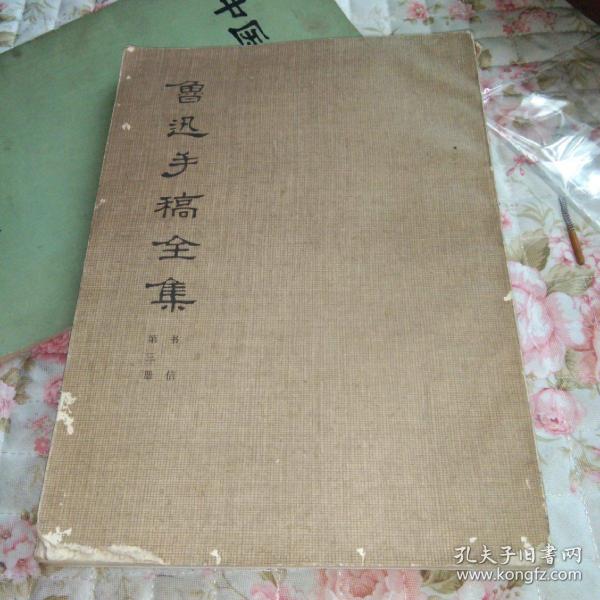 中国
魯迅手稿全集
书信
第三册
孔夫子旧书网
www.kongfz.com